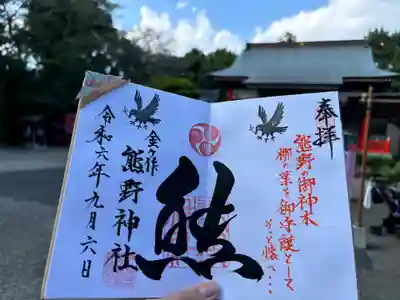 奉拝
熊野の御神木
梛の葉を御守護として
そっと懐へ…
熊
金作
熊野神社
令和六年九月六日